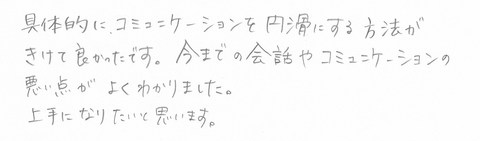 具体的に、コミュニケーションを円滑にする方法が
きけて良かったです。今までの会話やコミュニケーションの
悪い点がよくわかりました。
上手になりたいと思います。